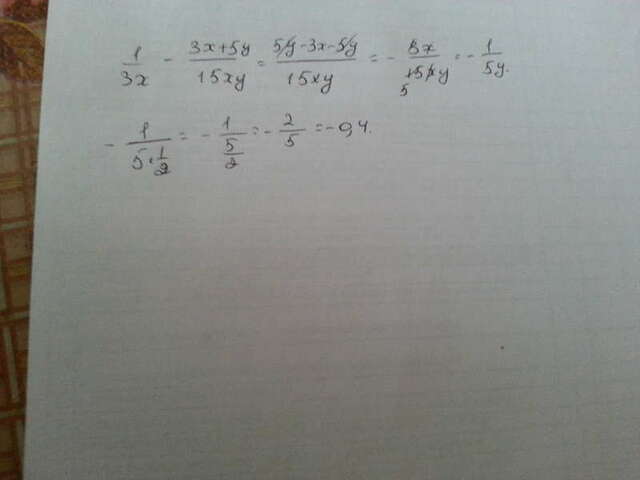 1/3x - (3x+5y)/15xy = (5y-3x-5y)/15xy = - 3x/15xy 5 = - 1/5y.
- 1/(5·1/2) = - 1/(5/2) = - 2/5 = -0,4.